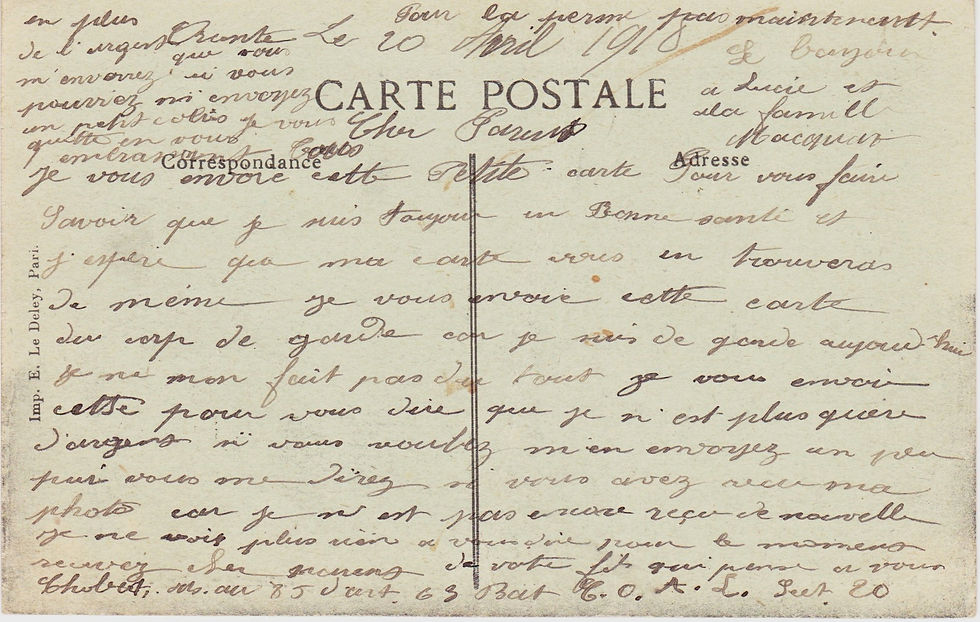 Pour la perme pas maintenant.
en plus
de l'argent que vous
m'enverrez si vous
pourriez m'envoyez
un petit colis je vous
quitte en vous
embrassant tous
Le 20 Avril 1918
Le bonjour
a Lucie et
a la famill
CARTE POSTALE
Cher Parents
Correspondance
Adresse
Je vous envoie cette Petite carte Pour vous faire
Savoir que je suis toujour en Bonne santé et
j'espere que ma carte vous en trouveras
de méme je vous envoie cette carte
du corp de garde car je suis de garde aujourd'hui
je ne mon fait pas du tout je vous envoie
cette pour vous dire que je n'est plus guère
d'argent si vous voulez m'en envoyez un peu
puis vous me direz si vous avez recu ma
photo car je n'est pas encore reçu de nouvelle
Je ne vois plus rien a vous dire pour le moment
recevez cher de votre fils qui pense a vous
au 85 d'art. 63 Bat C. O. A. L. Sect. 20
Imp. E. Le Deley, Pari.